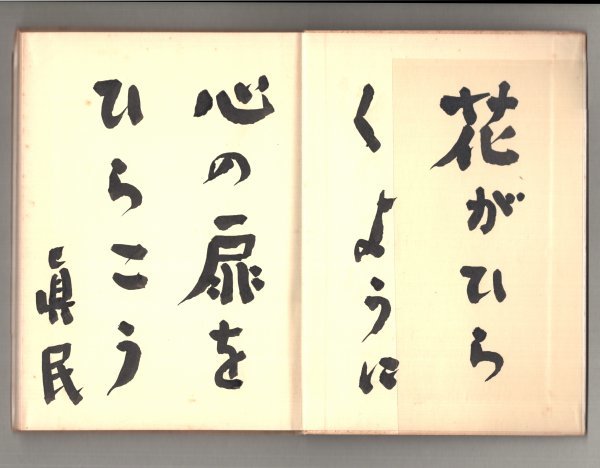 花がひら
くように
心の扉を
ひらこう
眞民